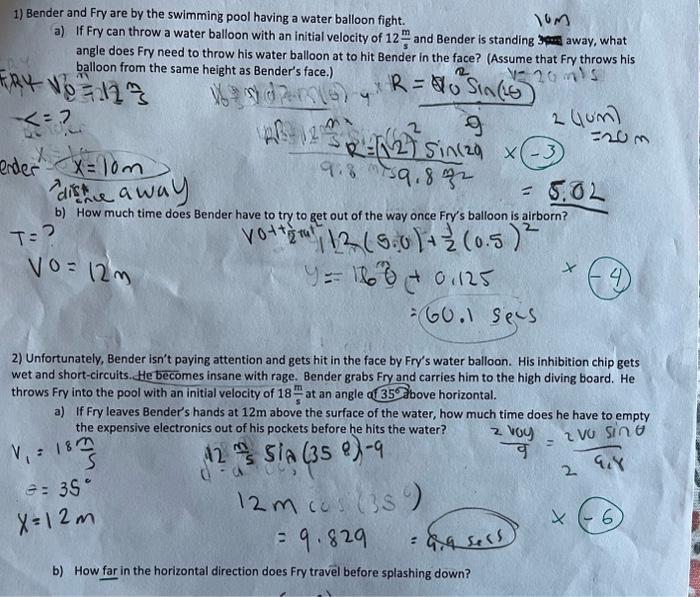 1) Bender and Fry are by the swimming pool having a water balloon fight.
10m
a) If Fry can throw a water balloon with an initial velocity of 12 m/s and Bender is standing away, what
angle does Fry need to throw his water balloon at to hit Bender in the face? (Assume that Fry throws his
balloon from the same height as Bender's face.)
V = 20 m/s
FRY V0 = 12 m/s
R = V0² Sin(20)
g
∠ = ?
2(10m)
= 20m
R = (12)² Sin(20
9.8 m/s²
x (-3)
ender x = 10m
away
= 5.02
b) How much time does Bender have to try to get out of the way once Fry's balloon is airborn?
T = ?
12(5.0) + ½(0.5)²
V0 = 12m
y = + 0.125
x (-4)
= 60.1 secs
2) Unfortunately, Bender isn't paying attention and gets hit in the face by Fry's water balloon. His inhibition chip gets
wet and short-circuits. He becomes insane with rage. Bender grabs Fry and carries him to the high diving board. He
throws Fry into the pool with an initial velocity of 18 m/s at an angle of 35° above horizontal.
a) If Fry leaves Bender's hands at 12m above the surface of the water, how much time does he have to empty
the expensive electronics out of his pockets before he hits the water?
2 V0y / g = 2 V0 sinθ
V₁ = 18 m/s
12 m/s Sin(35
θ = 35°
12m cos(35°)
X = 12m
x (-6)
= 9.829 = 9.9 secs
b) How far in the horizontal direction does Fry travel before splashing down?